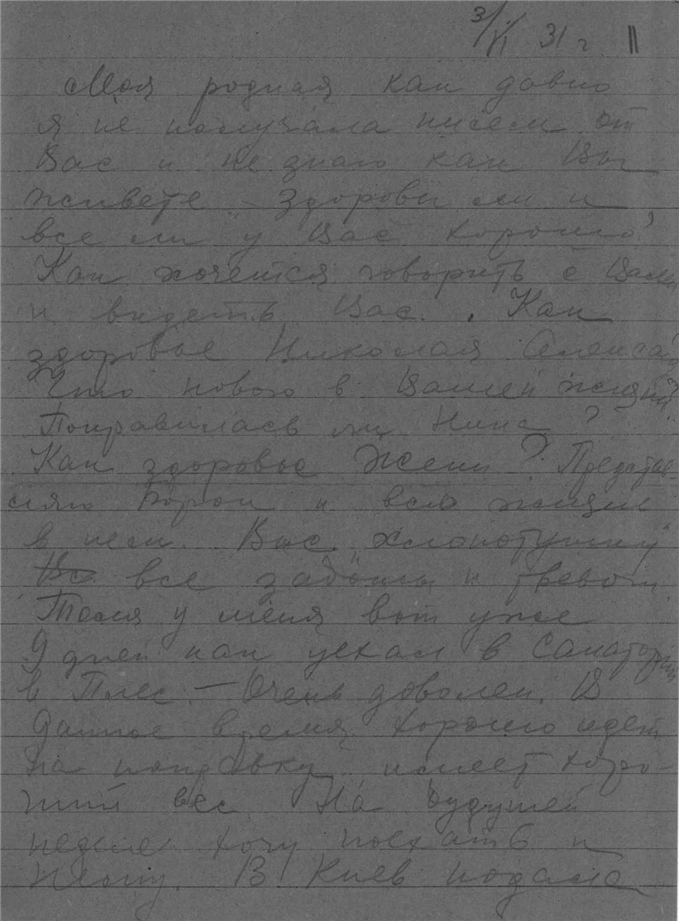 3/VI 31 г
Моя родная как давно
я не получала писем от
Вас и не знаю как Вы
живете – здоровы ли и
все ли у Вас хорошо,
Как хочется говорить с Вами
и видеть Вас. Как
здоровье Николая Алекса
Что нового в Вашей жизни?
Поправилась ли Нина?
Как здоровье Жени? Представ-
ляю и всю жизнь
в нем. Вас "хлопотунью"
все заботы и тревоги
у меня вот уже
9 дней как уехал в Санаторий
в Плес. – Очень доволен. В
данное время хорошо идет
на поправку имеет хоро-
ший вес На будущей
неделе хочу поехать и
к нему. В Киев подала